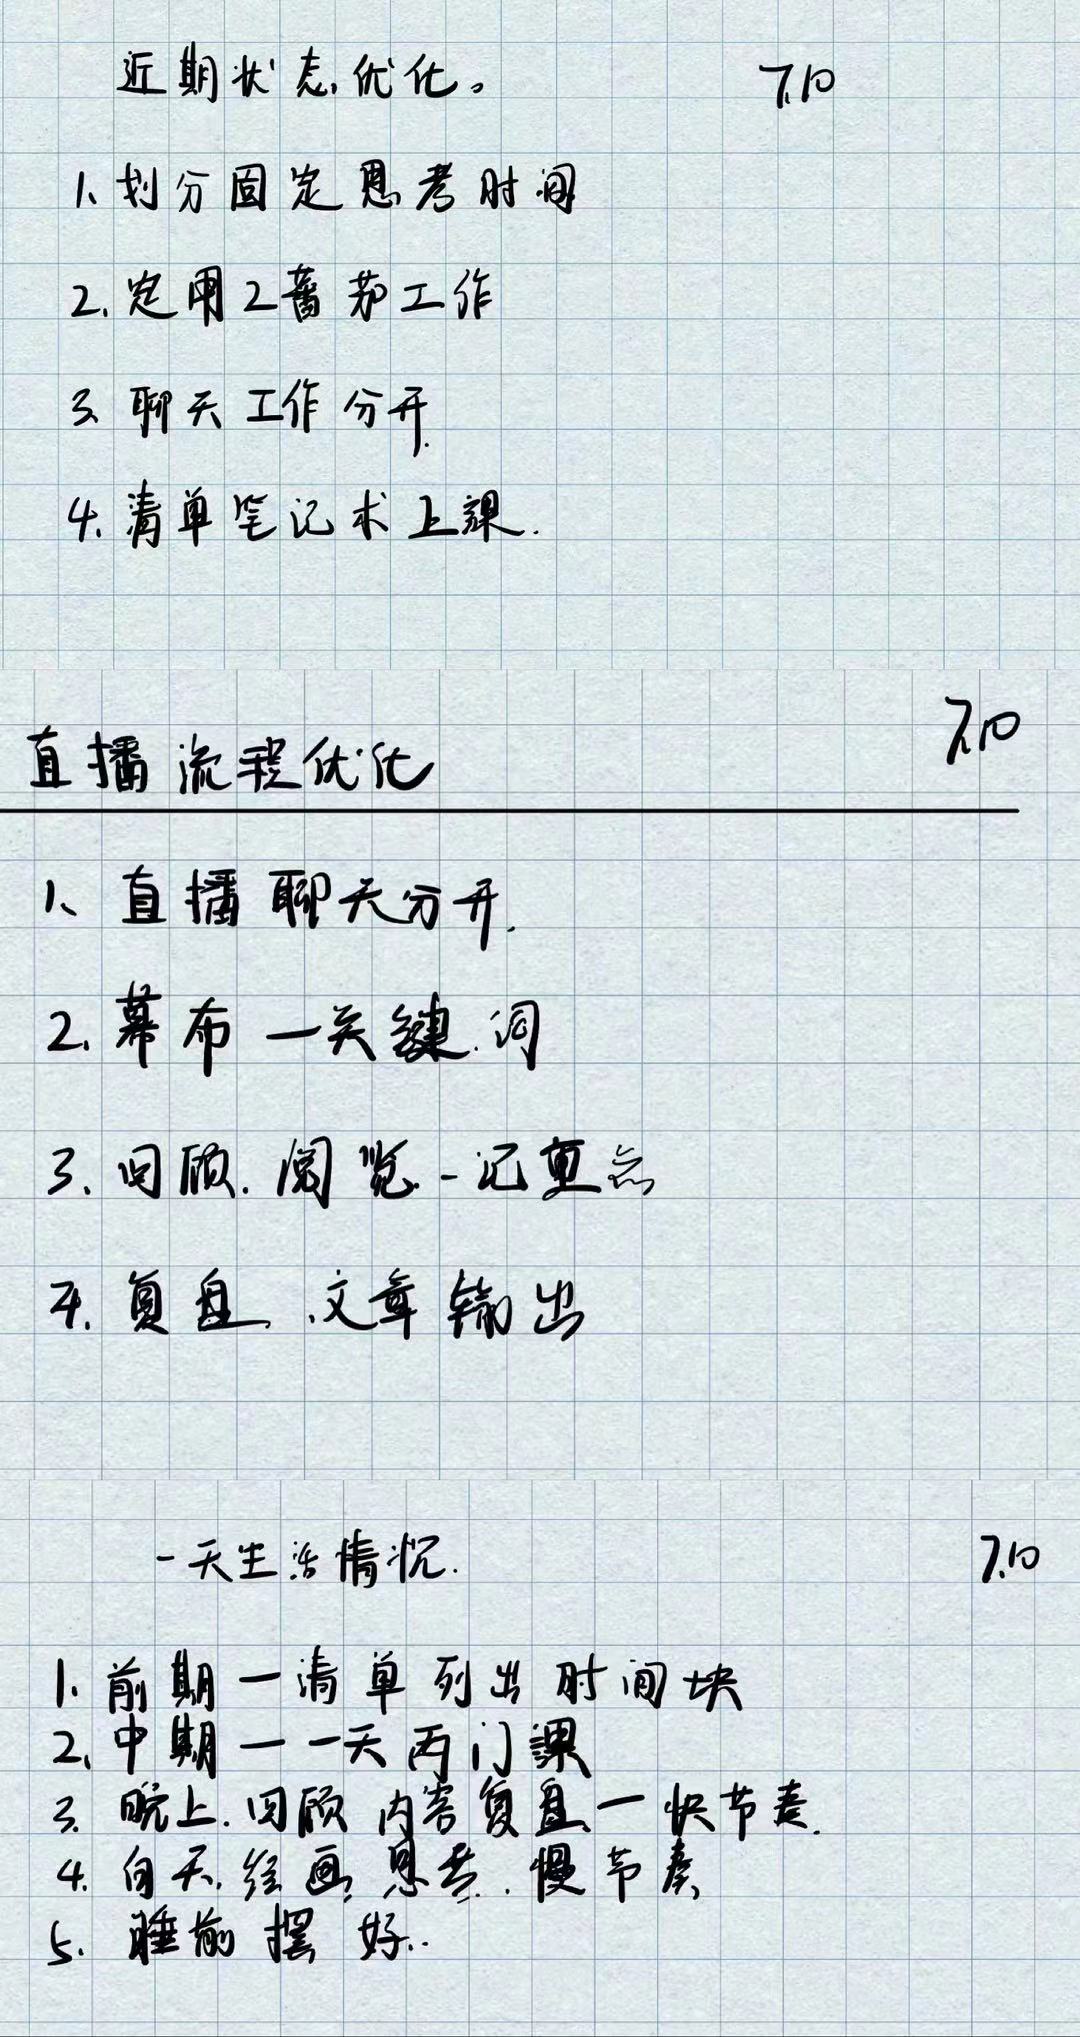 近期状态优化。 7.10
1、划分固定思考时间
2.定用2蕃茄工作
3、聊天工作分开.
4.清单笔记术上課.
直播流程优化 7.10
1、直播聊天分开.
2.幕布一关键词
3.回顾.阅览-记重点
4.复盘.文章输出
一天生活情况. 7.10
1.前期一清单列出时间块
2.中期一一天两门課
3.晚上.回顾内容复盘一快节奏.
4.白天.绘画思考.慢节奏
5.睡前摆好..